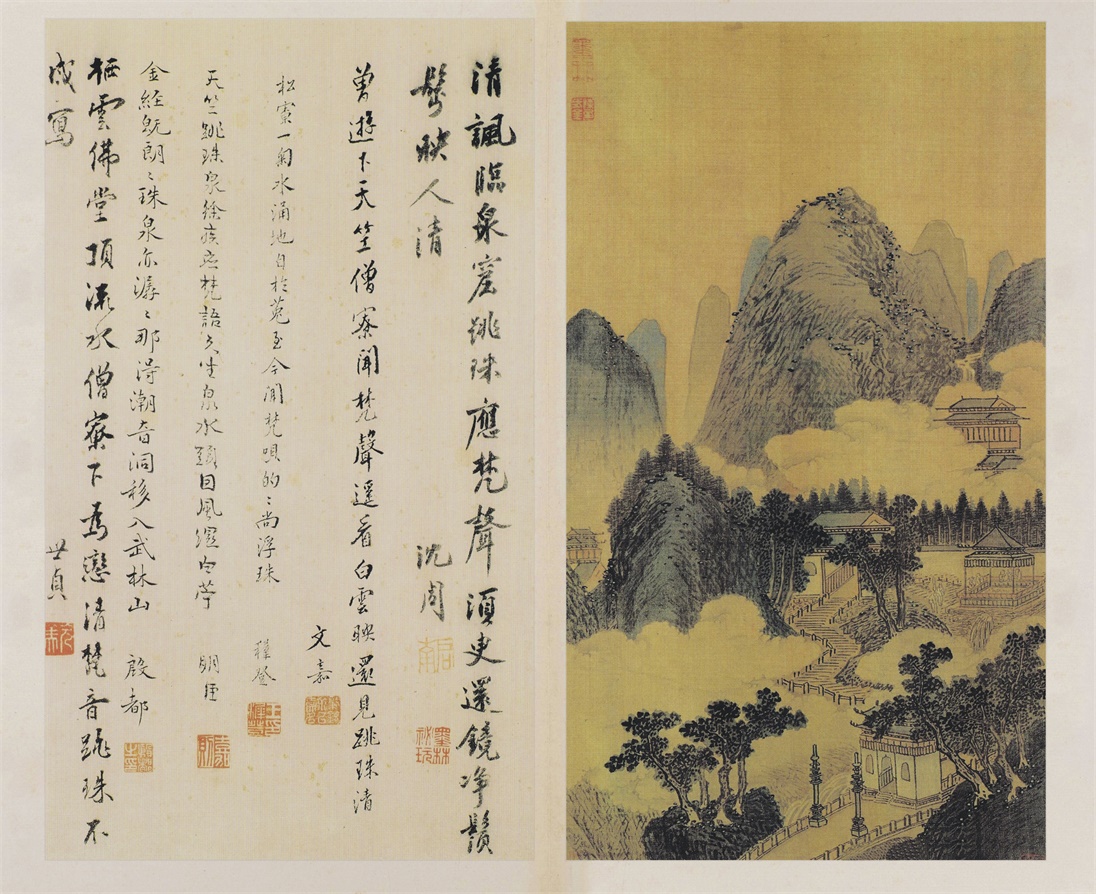 清諷臨泉窟跳珠應梵聲須臾還鏡净鬚
髩映人清 沈周
曾遊下天竺僧寮聞梵聲遥看白雲映還見跳珠清
文嘉
松寮一匊水涌地自於菟至今聞梵唄的〻尚浮珠
穉登
天竺跳珠泉徐疾應梵語久坐泉水頭因風濕白苧
明臣
金經既朗〻珠泉亦潺〻那得潮音洞移入武林山
殷都
栖雲佛堂頂流水僧寮下為戀清梵音跳珠不
成寫 世貞